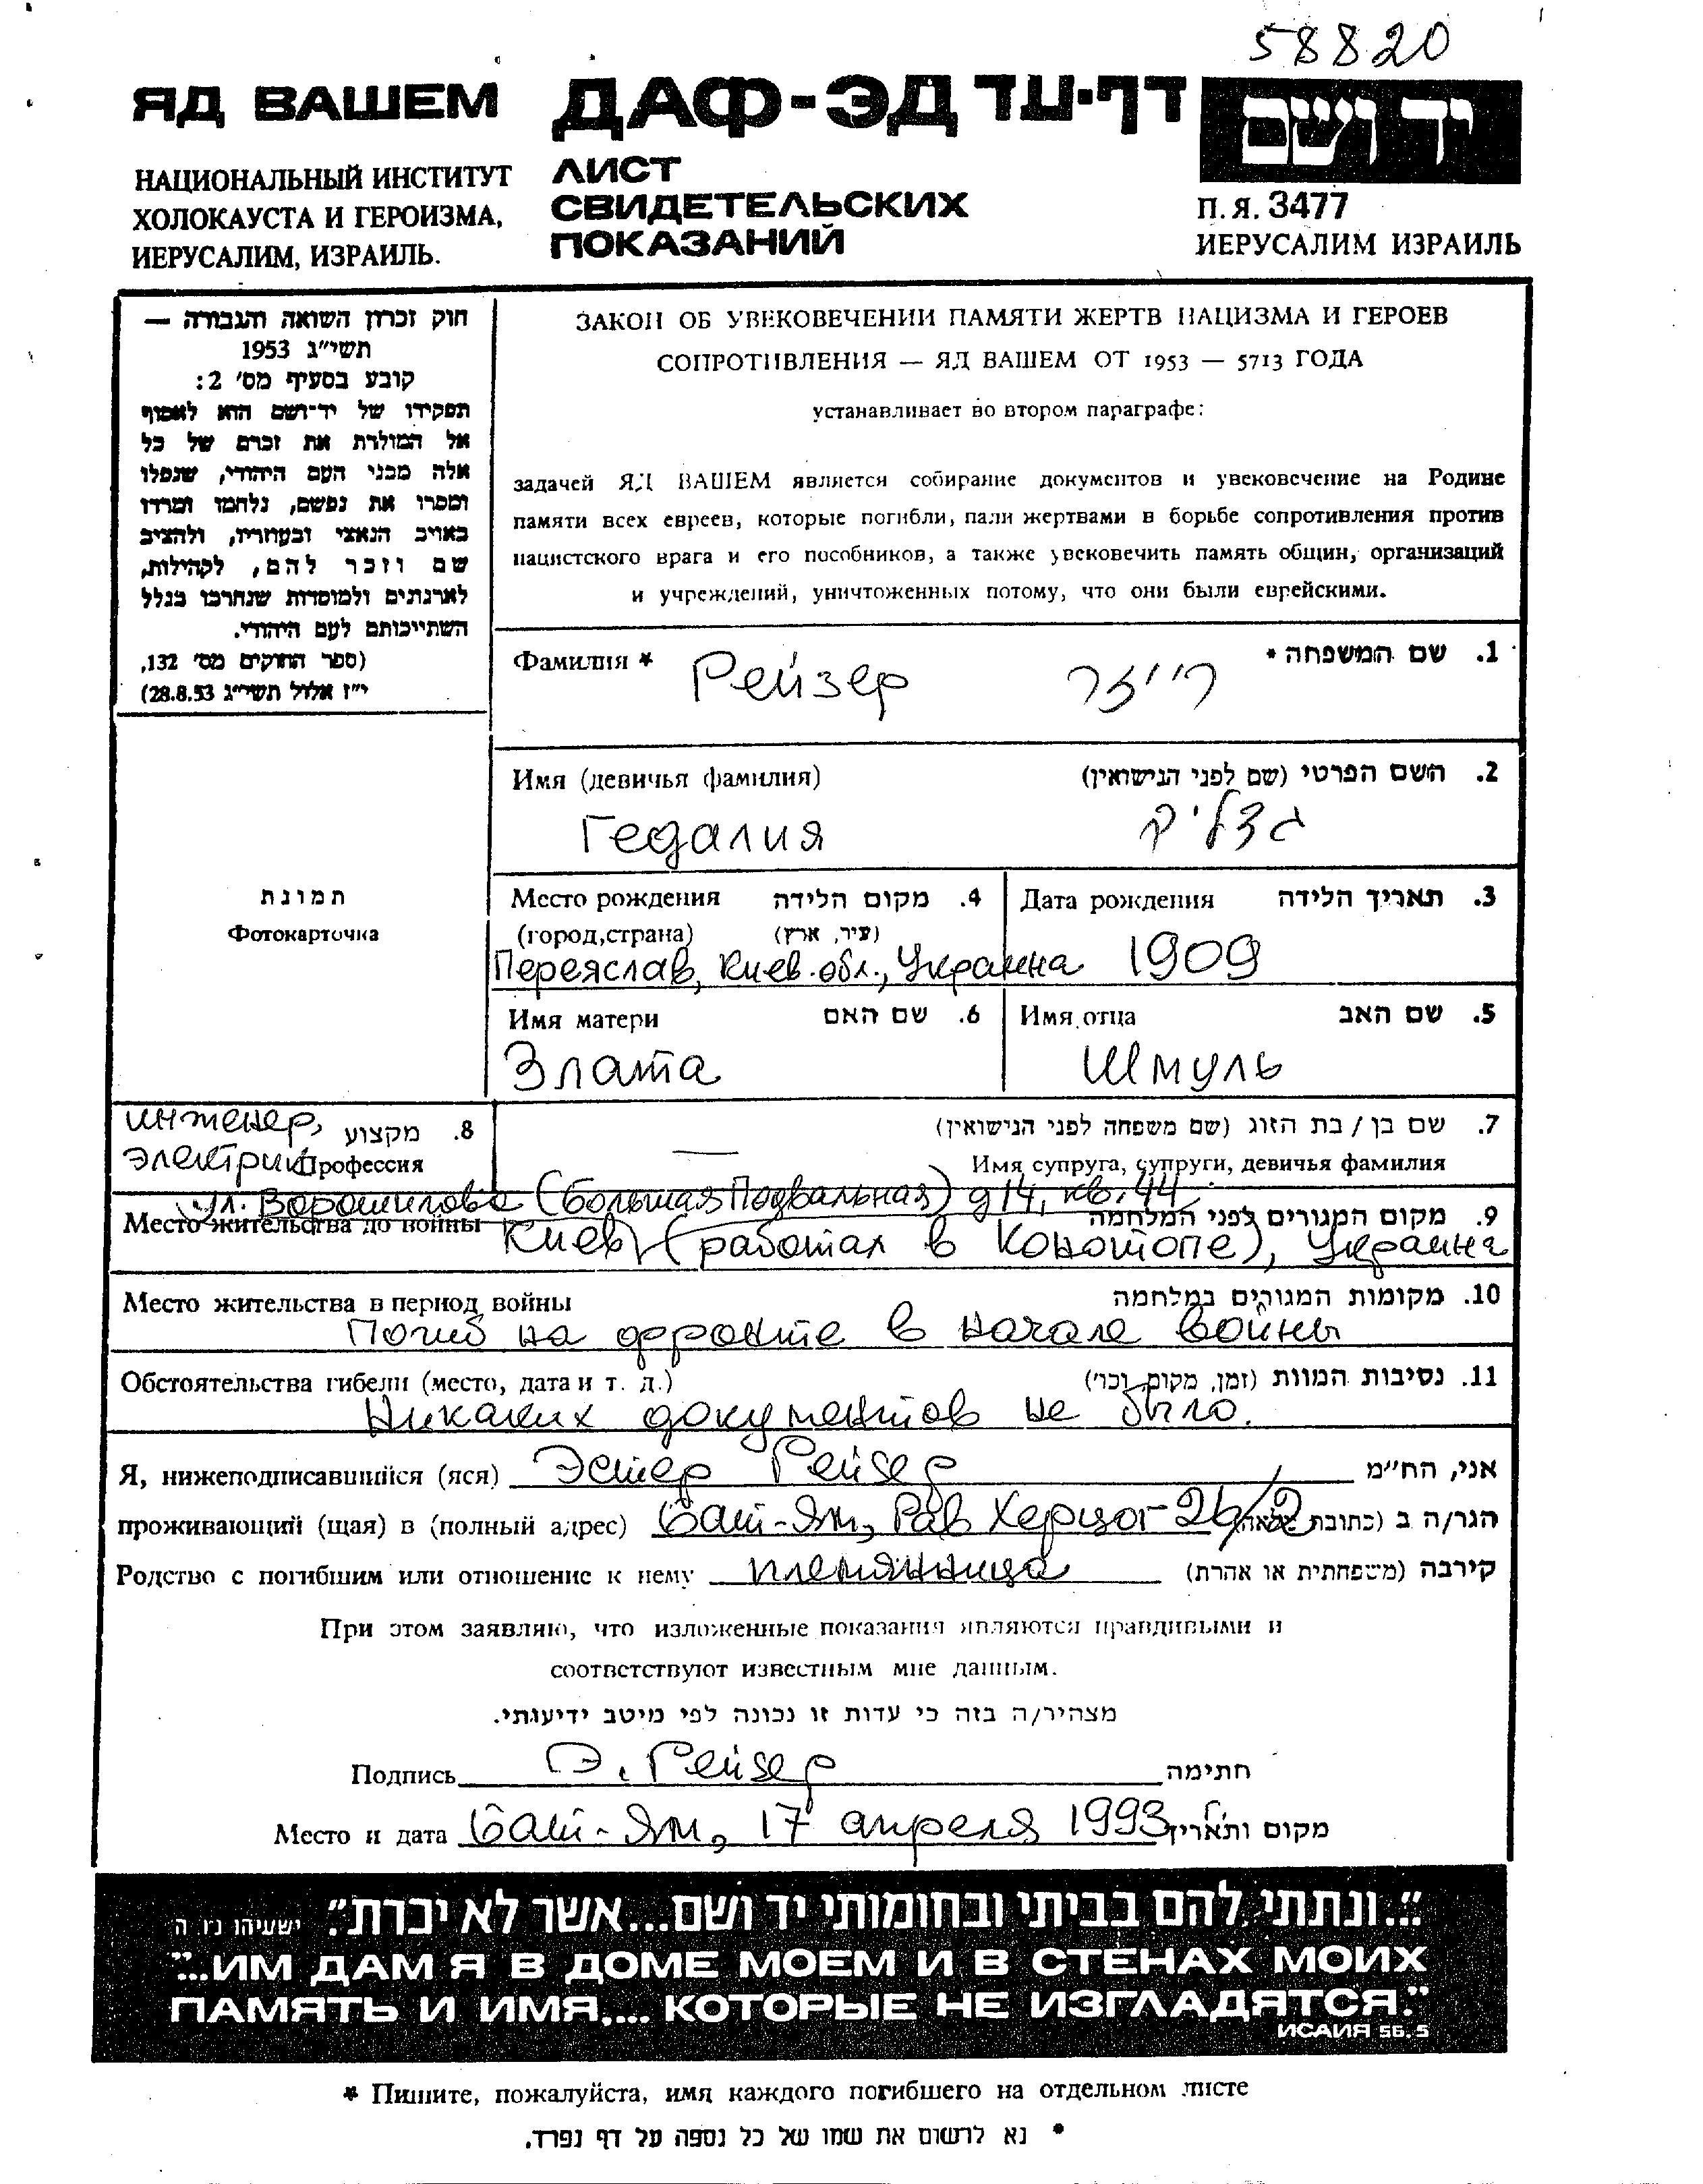 58820
ЯД ВАШЕМ
ДАФ-ЭД דף-עד
יד ושם
НАЦИОНАЛЬНЫЙ ИНСТИТУТ
ХОЛОКАУСТА И ГЕРОИЗМА,
ИЕРУСАЛИМ, ИЗРАИЛЬ.
ЛИСТ
СВИДЕТЕЛЬСКИХ
ПОКАЗАНИЙ
П.Я. 3477
ИЕРУСАЛИМ ИЗРАИЛЬ
חוק זכרון השואה והגבורה —
תשי״ג 1953
קובע בסעיף מס׳ 2:
תפקידו של יד־ושם הוא לאסוף
אל המולדת את זכרם של כל
אלה מבני העם היהודי, שנפלו
ומסרו את נפשם, נלחמו ומרדו
באויב הנאצי ובעוזריו, ולהציב
שם וזכר להם, לקהילות,
לארגונים ולמוסדות שנחרבו בגלל
השתייכותם לעם היהודי.
(ספר החוקים מס׳ 132,
י״ז אלול תשי״ג 28.8.53)
ЗАКОН ОБ УВЕКОВЕЧЕНИИ ПАМЯТИ ЖЕРТВ НАЦИЗМА И ГЕРОЕВ
СОПРОТИВЛЕНИЯ — ЯД ВАШЕМ ОТ 1953 — 5713 ГОДА
устанавливает во втором параграфе:
задачей ЯД ВАШЕМ является собирание документов и увековечение на Родине
памяти всех евреев, которые погибли, пали жертвами в борьбе сопротивления против
нацистского врага и его пособников, а также увековечить память общин, организаций
и учреждений, уничтоженных потому, что они были еврейскими.
Фамилия * 1. שם המשפחה *
Рейзер רייזר
Имя (девичья фамилия) 2. השם הפרטי (שם לפני הנישואין)
Гедалия
תמונת
Фотокарточка
Место рождения 4. מקום הלידה
(город,страна) (עיר, ארץ)
Переяслав, Киев. обл., Украина
Дата рождения 3. תאריך הלידה
1909
Имя матери 6. שם האם
Злата
Имя отца 5. שם האב
Шмуль
инженер,
электрик
8. מקצוע
Профессия
7. שם בן / בת הזוג (שם משפחה לפני הנישואין)
—
Имя супруга, супруги, девичья фамилия
ул. Ворошилова (Большая Подвальная) д 14, кв. 44
Место жительства до войны 9. מקום המגורים לפני המלחמה
Киев, (работал в Конотопе), Украина
Место жительства в период войны 10. מקומות המגורים במלחמה
Погиб на фронте в начале войны
Обстоятельства гибели (место, дата и т. д.) 11. נסיבות המוות (זמן, מקום, וכו׳)
Никаких документов не было.
Я, нижеподписавшийся (яся) Эстер Рейзер אני, הח״מ
проживающий (щая) в (полный адрес) Бат-Ям, Рав Херцог 26/2 הגר/ה ב (כתובת
Родство с погибшим или отношение к нему племянница קירבה (משפחתית או אחרת)
При этом заявляю, что изложенные показания являются правдивыми и
соответствуют известным мне данным.
מצהיר/ה בזה כי עדות זו נכונה לפי מיטב ידיעותי.
Подпись Э. Рейзер חתימה
Место и дата Бат-Ям, 17 апреля 1993 מקום ותאריך
״...ונתתי להם בביתי ובחומותי יד ושם...אשר לא יכרת״. ישעיהו נ״ו ה
"...ИМ ДАМ Я В ДОМЕ МОЕМ И В СТЕНАХ МОИХ
ПАМЯТЬ И ИМЯ,... КОТОРЫЕ НЕ ИЗГЛАДЯТСЯ."
ИСАИЯ 56.5
* Пишите, пожалуйста, имя каждого погибшего на отдельном листе
* נא לרשום את שמו של כל נספה על דף נפרד.